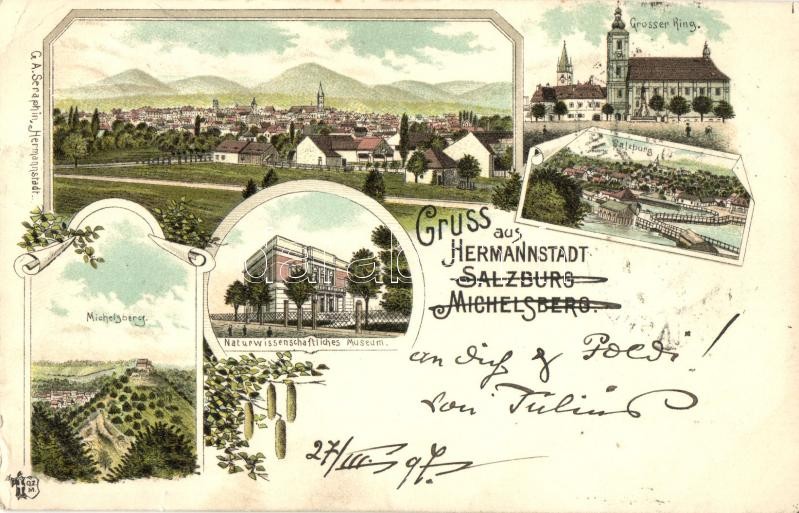 Grosser Ring.
G. A. Seraphin, Hermannstadt.
Salzburg
Gruss aus
HERMANNSTADT
SALZBURG
MICHELSBERG.
Michelsberg.
Naturwissenschaftliches Museum.
an dich & Poldi!
von Julius
27/III. 97.
darabanth